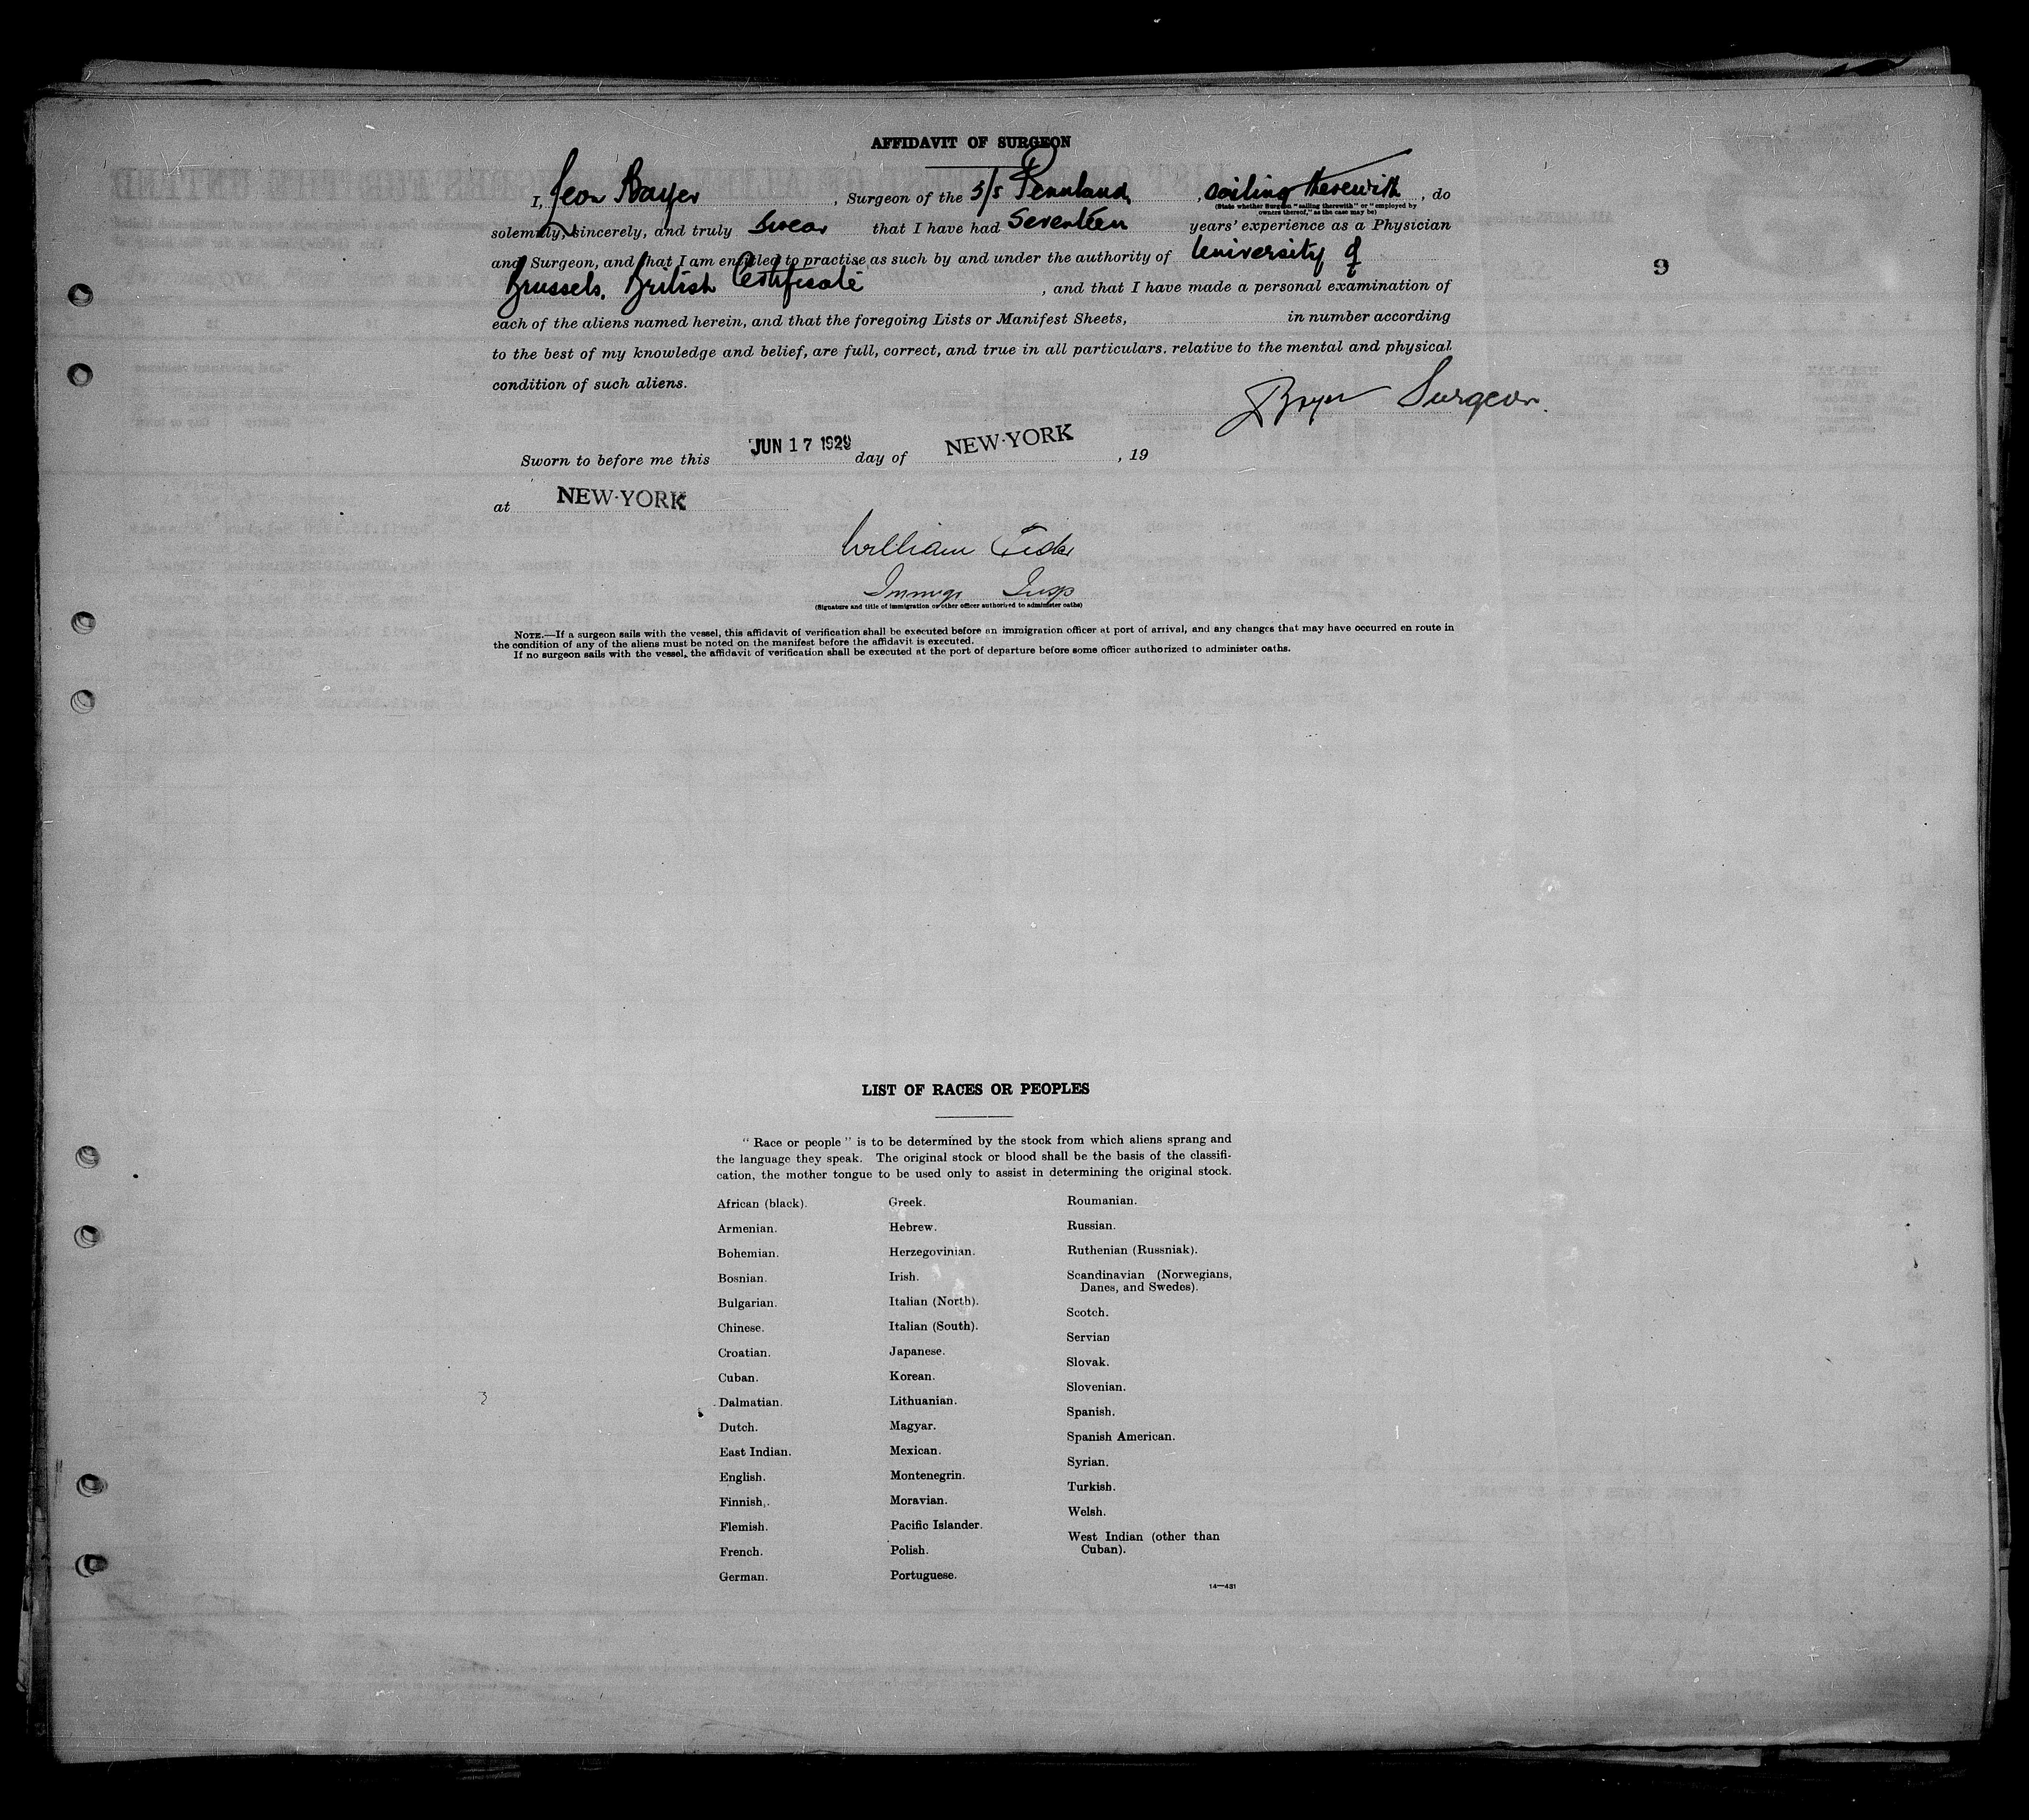 AFFIDAVIT OF SURGEON
I, Jean Bayer, Surgeon of the S/S Pennland, sailing therewith, do
(State whether Surgeon "sailing therewith" or "employed by
owners thereof," as the case may be)
solemnly, sincerely, and truly swear that I have had Seventeen years' experience as a Physician
and Surgeon, and that I am entitled to practise as such by and under the authority of University of
Brussels. British Certificate, and that I have made a personal examination of
each of the aliens named herein, and that the foregoing Lists or Manifest Sheets, in number according
to the best of my knowledge and belief, are full, correct, and true in all particulars. relative to the mental and physical
condition of such aliens.
Bayer Surgeon.
9
Sworn to before me this JUN 17 1929 day of NEW·YORK, 19
at NEW·YORK
William
Immigr Insp
(Signature and title of immigration or other officer authorized to administer oaths)
NOTE.—If a surgeon sails with the vessel, this affidavit of verification shall be executed before an immigration officer at port of arrival, and any changes that may have occurred en route in
the condition of any of the aliens must be noted on the manifest before the affidavit is executed.
If no surgeon sails with the vessel, the affidavit of verification shall be executed at the port of departure before some officer authorized to administer oaths.
LIST OF RACES OR PEOPLES
"Race or people" is to be determined by the stock from which aliens sprang and
the language they speak. The original stock or blood shall be the basis of the classifi-
cation, the mother tongue to be used only to assist in determining the original stock.
African (black).
Armenian.
Bohemian.
Bosnian.
Bulgarian.
Chinese.
Croatian.
Cuban.
Dalmatian.
Dutch.
East Indian.
English.
Finnish.
Flemish.
French.
German.
Greek.
Hebrew.
Herzegovinian.
Irish.
Italian (North).
Italian (South).
Japanese.
Korean.
Lithuanian.
Magyar.
Mexican.
Montenegrin.
Moravian.
Pacific Islander.
Polish.
Portuguese.
Roumanian.
Russian.
Ruthenian (Russniak).
Scandinavian (Norwegians,
Danes, and Swedes).
Scotch.
Servian
Slovak.
Slovenian.
Spanish.
Spanish American.
Syrian.
Turkish.
Welsh.
West Indian (other than
Cuban).
14—431